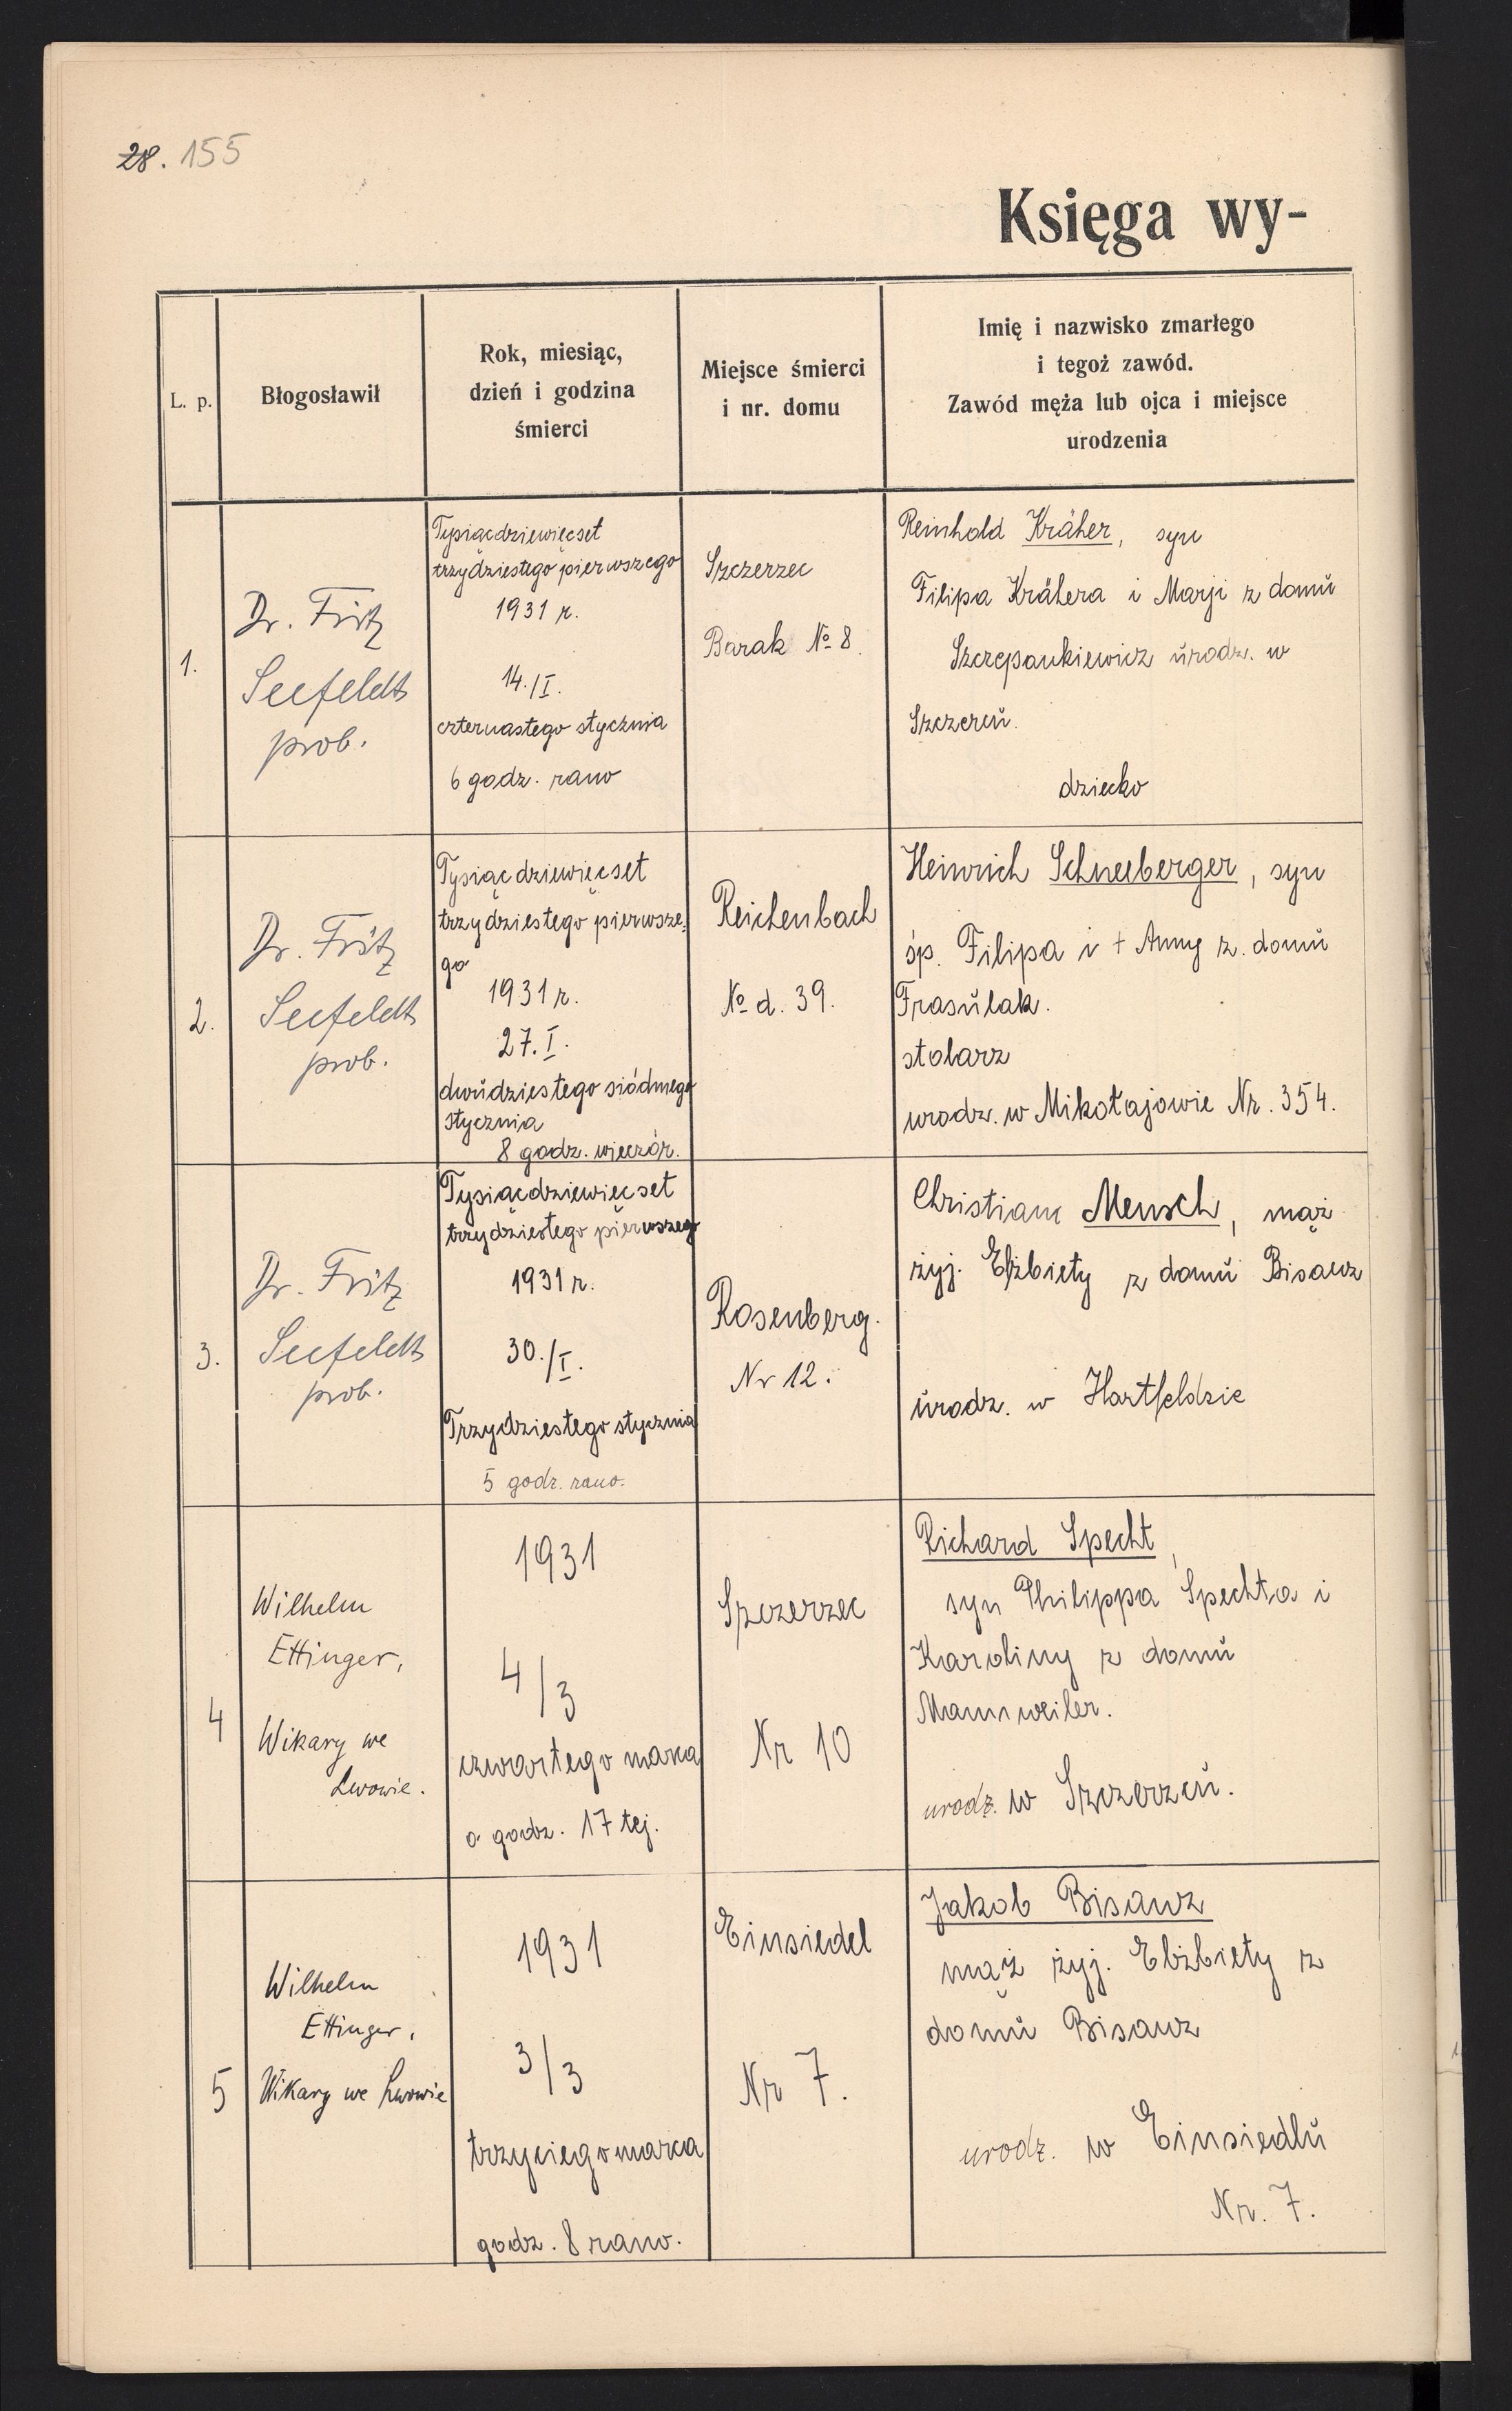 28. 155
Księga wy-
L. p.
Błogosławił
Rok, miesiąc,
dzień i godzina
śmierci
Miejsce śmierci
i nr. domu
Imię i nazwisko zmarłego
i tegoż zawód.
Zawód męża lub ojca i miejsce
urodzenia
1.
Dr. Fritz
Seefeldt
prob.
Tysiącdziewięcset
trzydziestego pierwszego
1931 r.
14./I.
czternastego stycznia
6 godz. rano
Szczerzec
Barak № 8.
Reinhold Kräher, syn
Filipa Krähera i Marji z domu
Szczepankiewicz urodz. w
Szczercu.
dziecko
2.
Dr. Fritz
Seefeldt
prob.
Tysiąc dziewięcset
trzydziestego pierwsze-
go
1931 r.
27. I.
dwudziestego siódmego
stycznia
8 godz. wieczór.
Reichenbach
№ d. 39.
Heinrich Schneeberger, syn
śp. Filipa i + Anny z. domu
Frasulak.
stolarz
urodz. w Mikołajowie Nr. 354.
3.
Dr. Fritz
Seefeldt
prob.
Tysiącdziewięcset
trzydziestego pierwszego
1931 r.
30./I.
Trzydziestego stycznia
5 godz. rano.
Rosenberg.
Nr 12.
Christian Mensch, mąż
żyj. Elżbiety z domu Bisanz
urodz. w Hartfeldzie
4
Wilhelm
Ettinger,
Wikary we
Lwowie.
1931
4/3
czwartego marca
o godz. 17 tej.
Szczerzec
Nr 10
Richard Specht,
syn Philippa Spechta i
Karoliny z domu
Mannweiler.
urodz. w Szczerzcu.
5
Wilhelm
Ettinger,
Wikary we Lwowie
1931
3/3
trzyciego marca
godz. 8 rano.
Einsiedel
Nr 7.
Jakob Bisanz
mąż żyj. Elżbiety z
domu Bisanz
urodz. w Einsiedlu
Nr. 7.